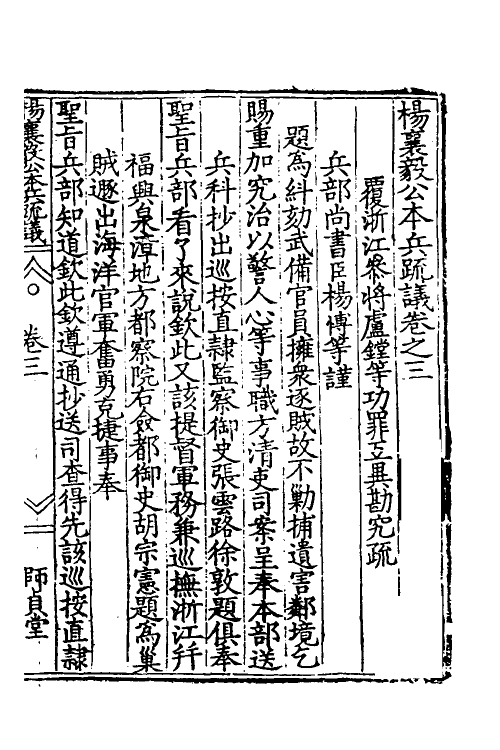 楊襄毅公本兵疏議卷之三
覆浙江叅將盧鏜等功罪互異勘究疏
兵部尚書臣楊博等謹
題為糾劾武備官員擁衆逐賊故不勦捕遺害鄰境乞
賜重加究治以警人心等事職方清吏司案呈奉本部送
兵科抄出巡按直隷監察御史張雲路徐敦題俱奉
聖旨兵部看了來說欽此又該提督軍務兼巡撫浙江幷
福興泉漳地方都察院右僉都御史胡宗憲題為巢
賊遯出海洋官軍奮勇克捷事奉
聖旨兵部知道欽此欽遵通抄送司查得先該巡按直隷
楊襄毅公本兵疏議
卷三
師貞堂